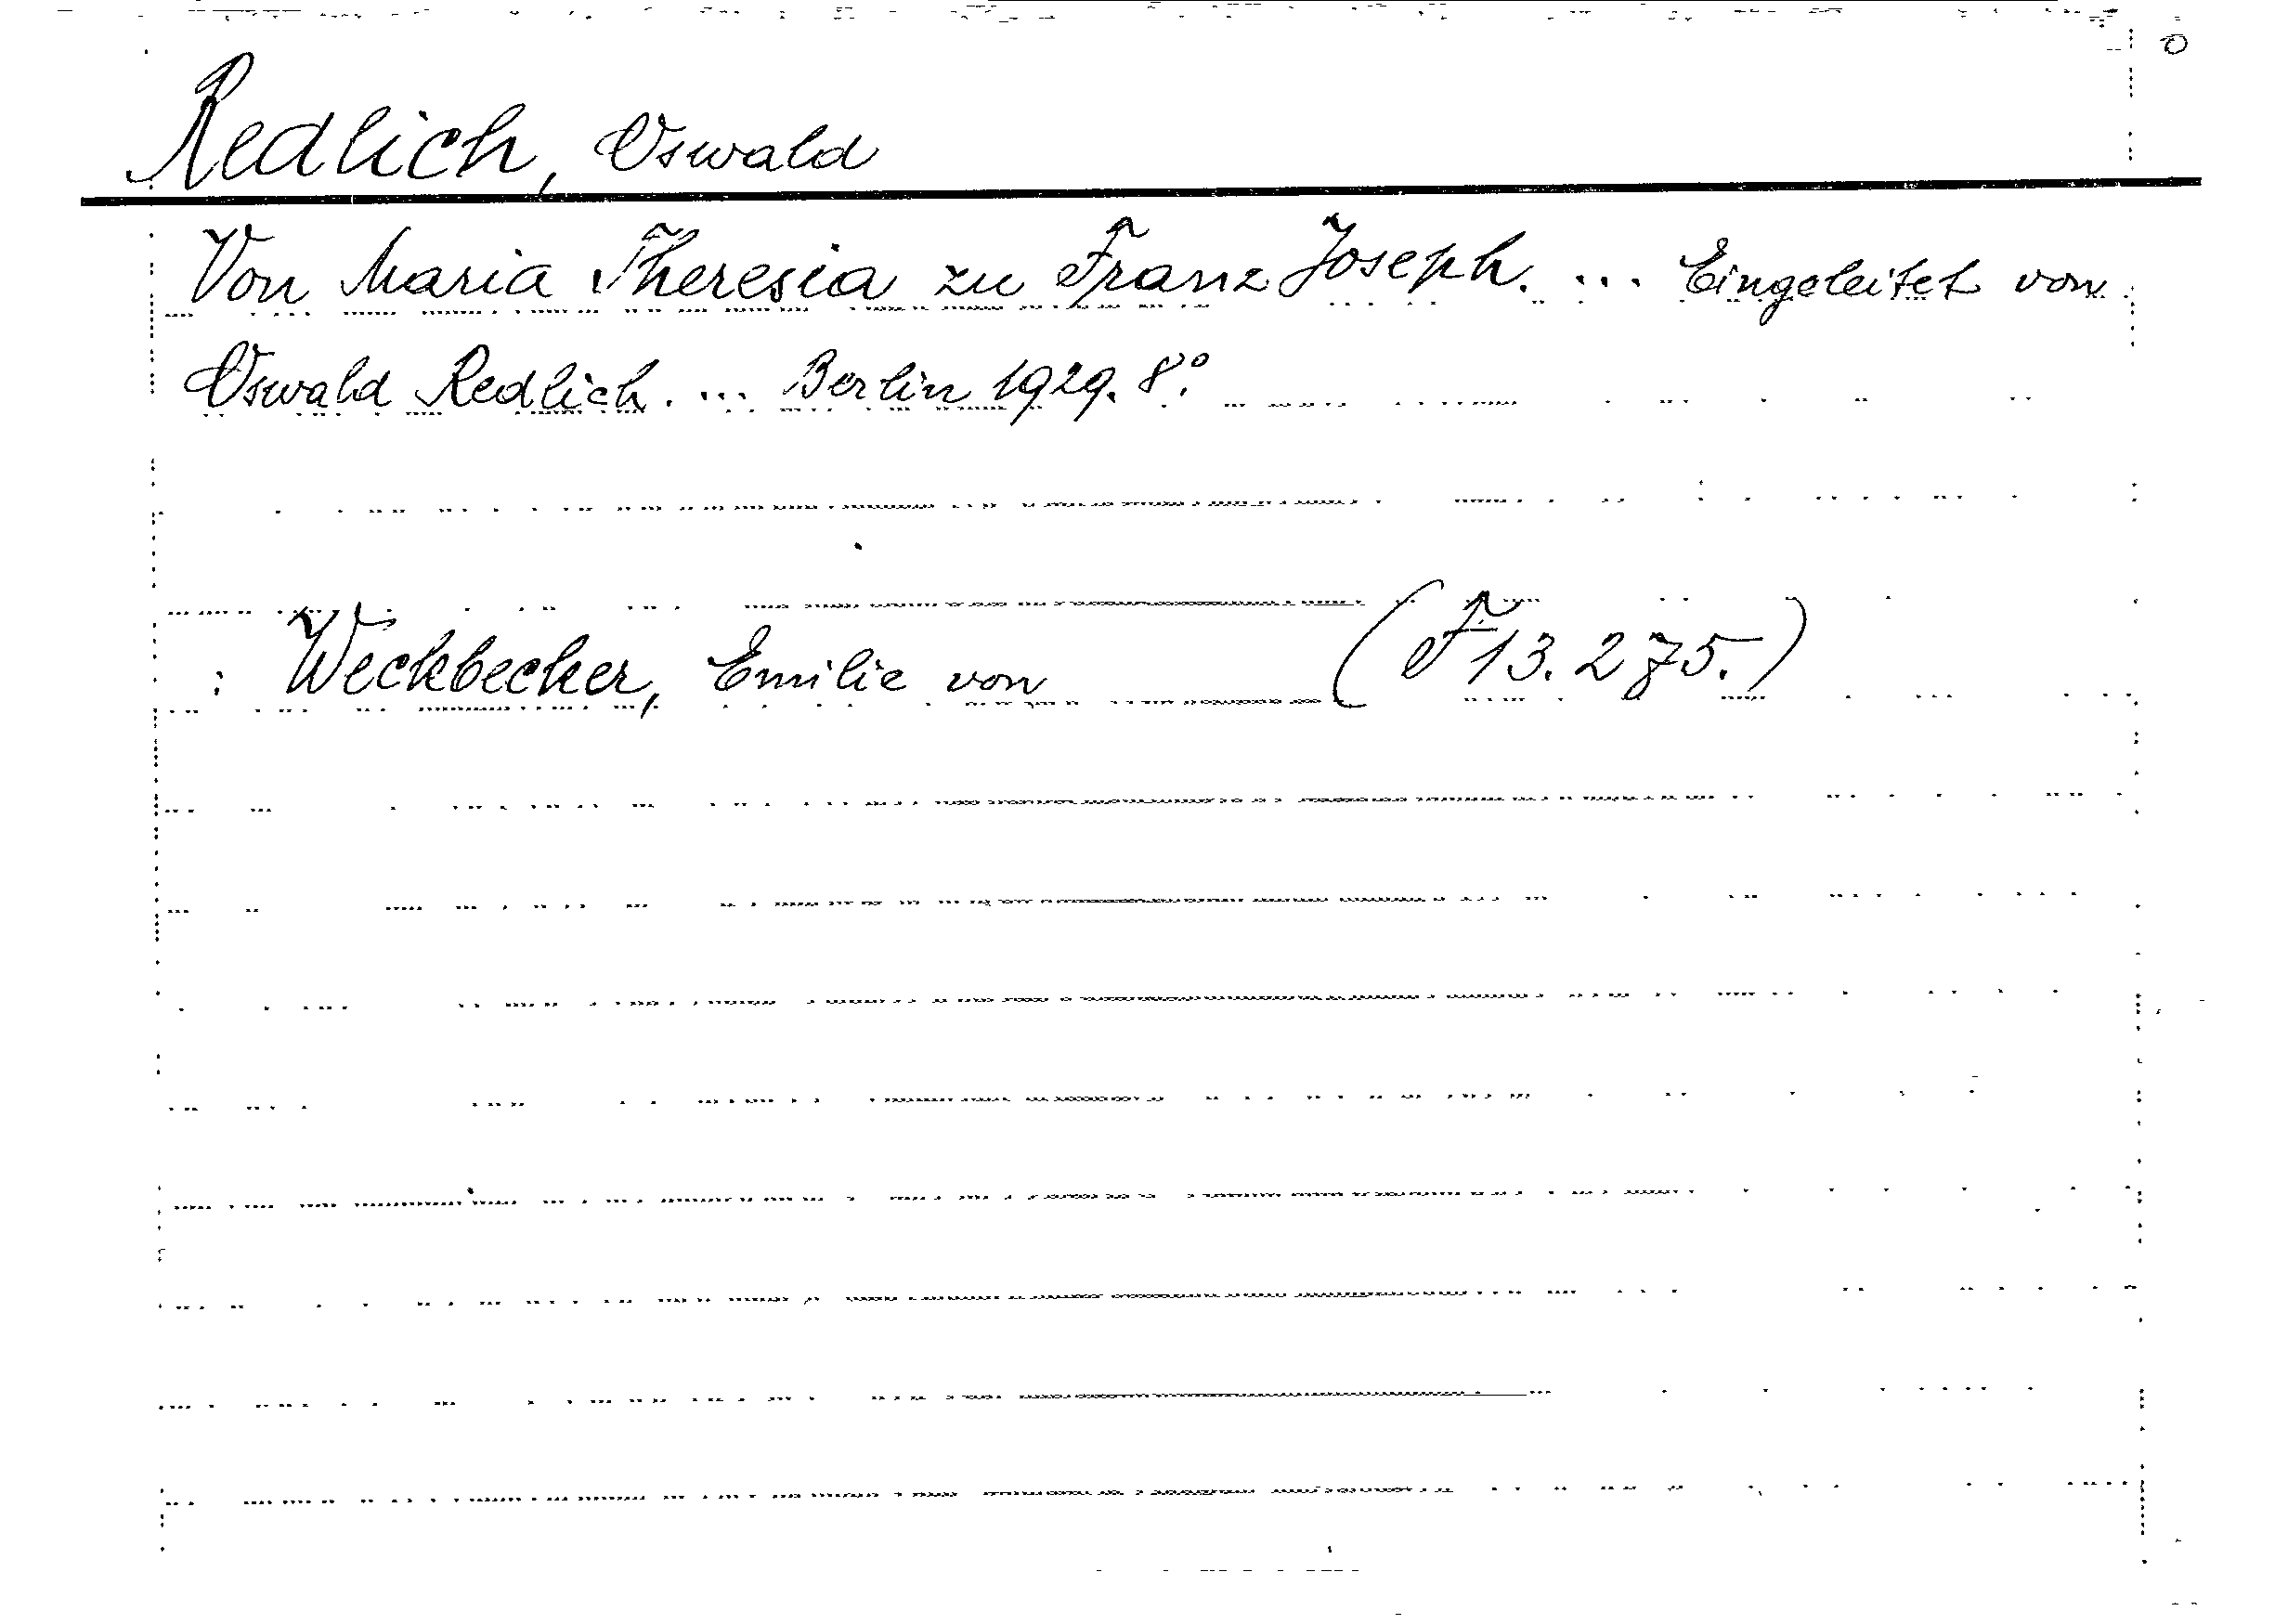 Redlich, Oswald
Von Maria Theresia zu Franz Joseph. ... Eingeleitet von
Oswald Redlich. ... Berlin 1929. 8°
: Weckbecker, Emilie von (F 13.275.)